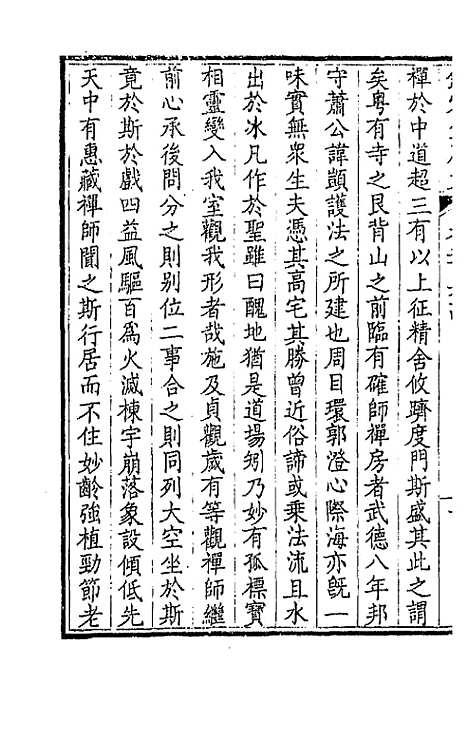 禪於中道超三有以上征精舍攸躋度門斯盛其此之謂
矣粤有寺之艮背山之前臨有確師禪房者武德八年邦
守蕭公諱顗護法之所建也周目環郭澄心際海亦旣一
味實無衆生夫憑其高宅其勝曾近俗諦或乗法流且水
出於冰凡作於聖雖曰醜地猶是道場矧乃妙有孤標寳
相靈變入我室觀我形者哉施及貞觀歲有等觀禪師繼
前心承後問分之則别位二事合之則同列大空坐於斯
竟於斯於戲四益風驅百爲火滅棟宇崩落象設傾低先
天中有惠藏禪師闡之斯行居而不住妙齡強植勁節老